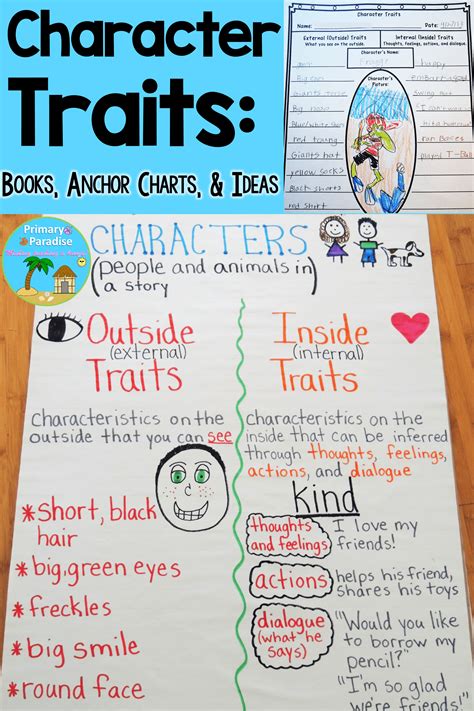 Character
Traits:
Books, Anchor Charts, & Ideas
Character Traits
Name: Date:
External (Outside) Traits
What you see on the outside.
Internal (Inside) Traits
Thoughts, feelings, actions, and dialogue
Character's Name:
Froggy
happy
Character's
Picture:
Big nose
Giants hat
yellow socks
Black shorts
red shirt
ran Bases
played T-Ball
Primary
Paradise
CHARACTERS
(people and animals in)
a story
Outside
(external)
Traits
Inside
(internal)
Traits
Characteristics on the
outside that you can see
Characteristics on the
inside that can be inferred
through thoughts, feelings,
actions, and dialogue
*short, black
hair
*big, green eyes
*freckles
*big smile
*round face
kind
thoughts
and feelings
I love my
friends!
actions
helps his friend,
shares his toys
dialogue
(what he
says)
"Would you like
to borrow my
pencil?"
"I'm so glad
we're friends!"